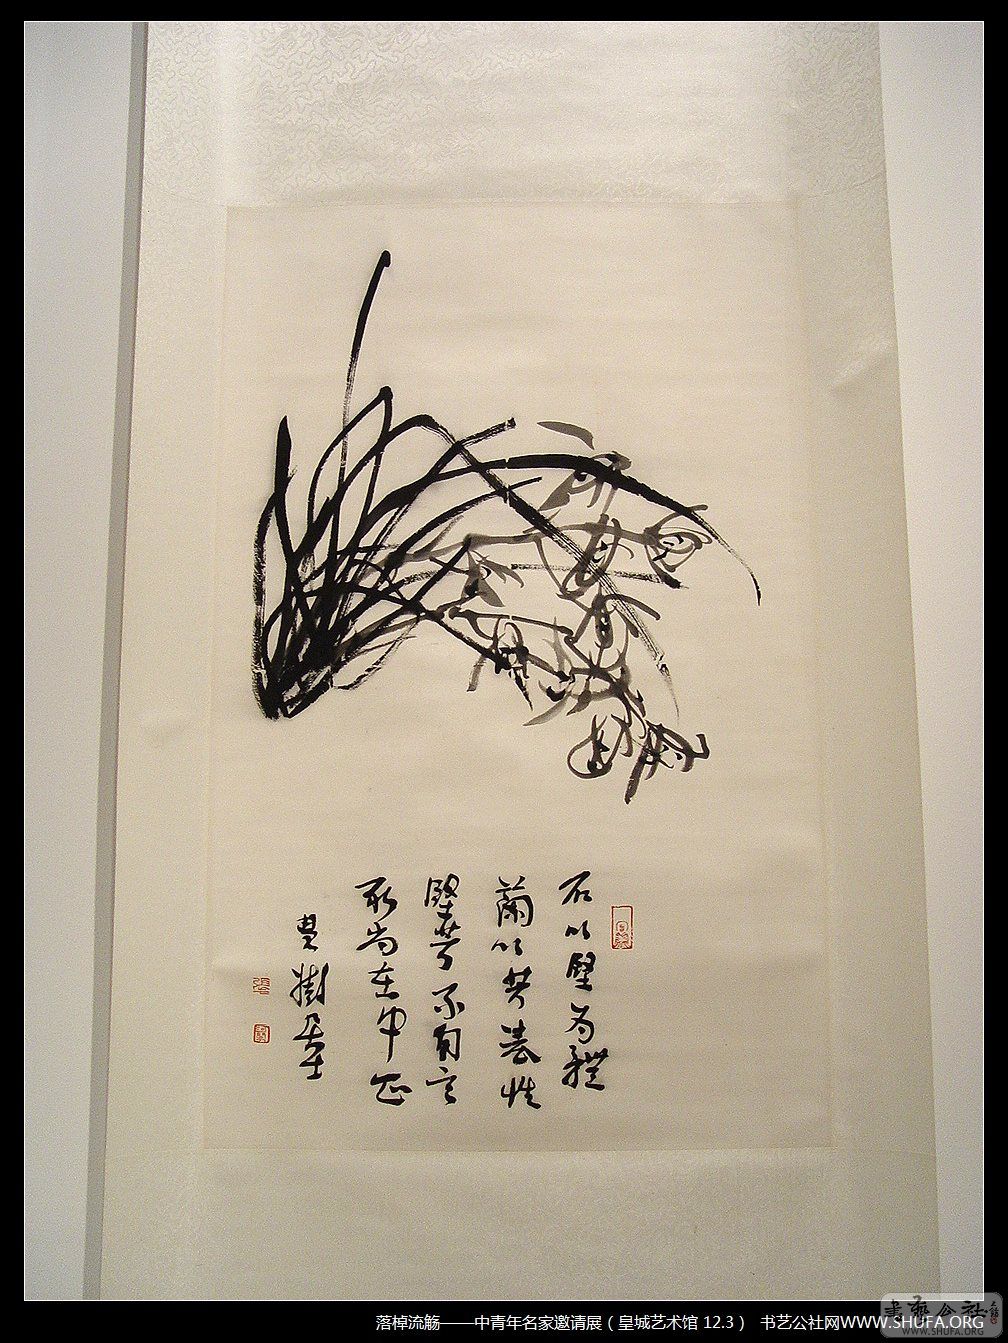 石以堅為體
蘭以芳為性
堅芳不自言
所尚在中正
樹居士
落棹流觞——中青年名家邀请展（皇城艺术馆 12.3） 书艺公社网WWW.SHUFA.ORG
书艺公社
WWW.SHUFA.ORG